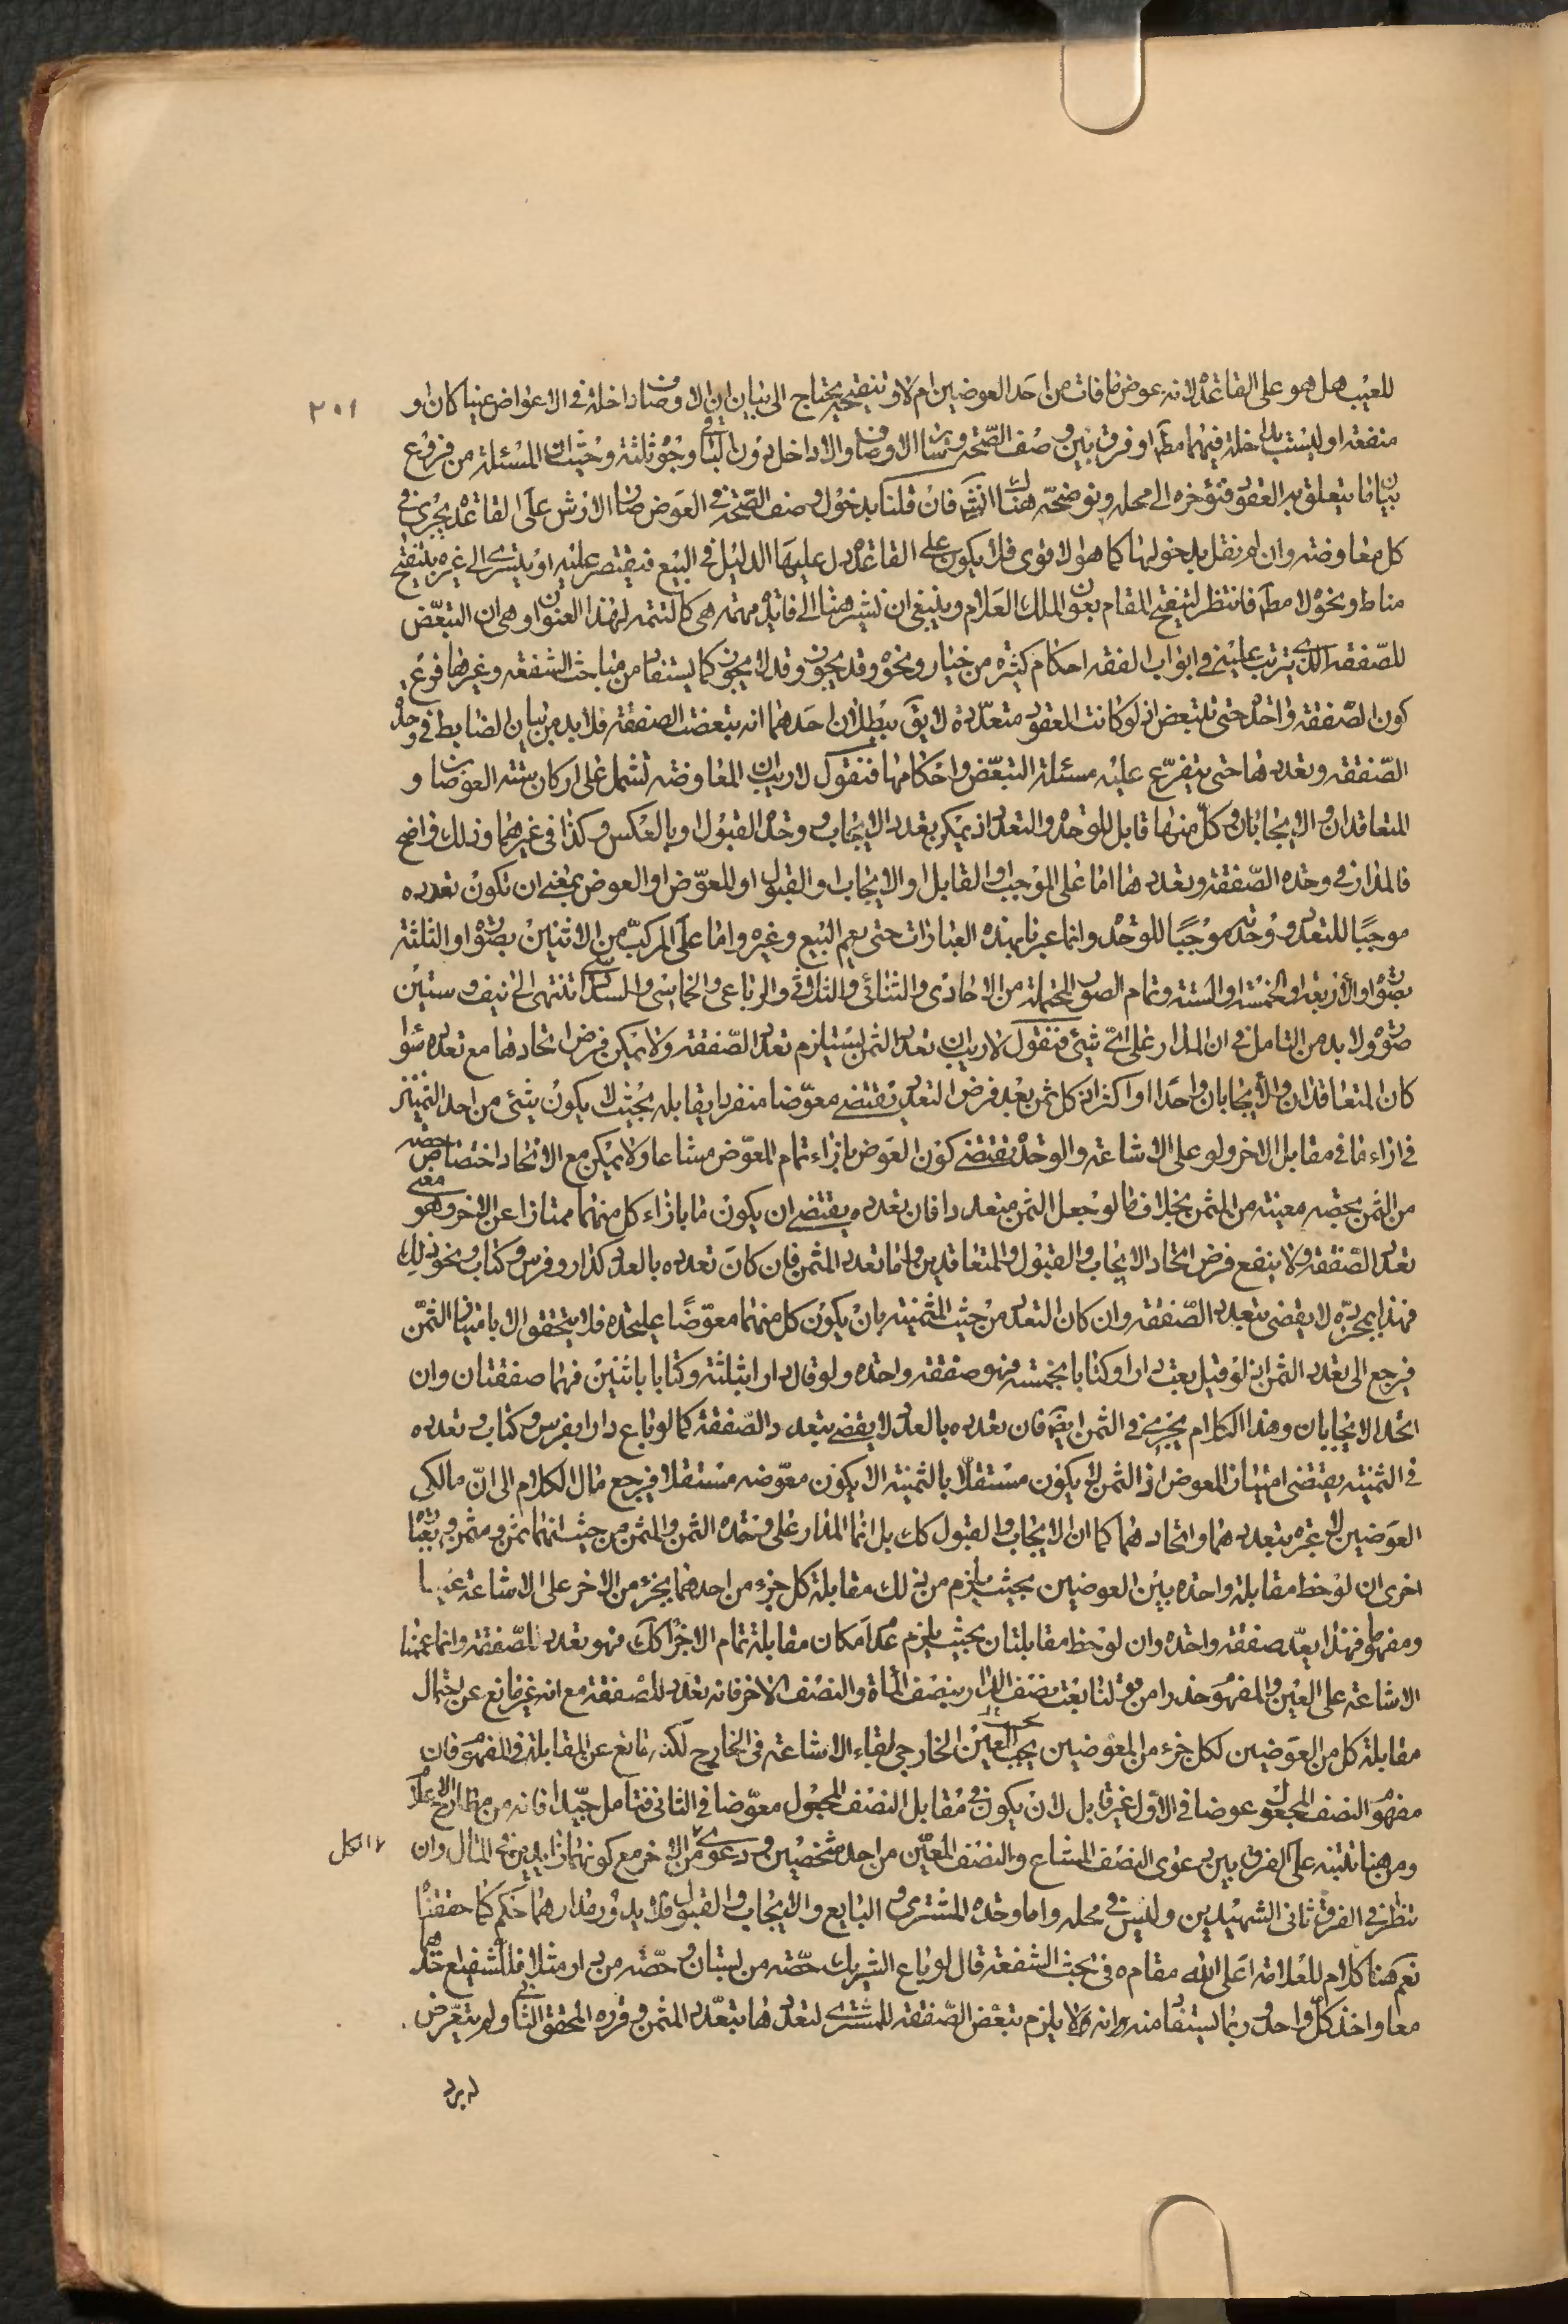 للعيب هل هو على القاعدة لانه عوض ما فات من احد العوضين ام لا وتنقيحه يحتاج الى بيان ان الاوصاف داخلة في الاعواض عينا كان او
٢٠١
منفعة او ليست بداخلة فيهما مطلقا او فرق بين وصف الصحة وسائر الاوصاف والاداخل دون البواقي وجوه ثلثة وحيث ان المسئلة من فروع
بيان ما يتعلق به العقود فنؤخره الى محله ونوضحه هناك انش فان قلنا بدخول وصف الصحة في العوض ضمان الارش على القاعدة يجري في
كل معاوضة وان لم نقل بدخولها كما هو الاقوى فلا يكون على القاعدة بل عليها الدليل في البيع فيقتصر عليه او يتسرى الى غيره بتنقيح
مناط ونحوه لا مطلقا فانتظر لتنقيح المقام بعون الملك العلام وينبغي ان نشير هنا الى فائدة مهمة هي كالتتمة لهذا العنوان وهي ان التبعض
للصفقة الذي يترتب عليه في ابواب الفقه احكام كثيرة من خيار ونحوه وقد يجوز وقد لا يجوز كما يستفاد من مباحث الشفعة وغيرها فرع
كون الصفقة واحدة حتى تتبعض اذ لو كانت العقود متعددة لا يق ببطلان احدهما انه تبعضت الصفقة فلابد من بيان الضابط في وحدة
الصفقة وتعددها حتى يتفرع عليه مسئلة التبعض واحكامها فنقول لا ريب ان المعاوضة تشمل على اركان ستة العوضان و
المتعاقدان والايجابان وكل منها قابل للوحدة والتعدد اذ يمكن تعدد الايجاب وحدة القبول او بالعكس وكذا في غيرهما وذلك واضح
فالمدار في وحدة الصفقة وتعددها اما على الموجب او القابل او الايجاب او القبول او المعوض او العوض بمعنى ان تكون تعدده
موجبا للتعدد ووحدته موجبا للوحدة وانما عبرنا بهذه العبارات حتى يعم البيع وغيره واما على المركب من الاثنين بصوره او الثلثة
بصوره او الاربعة او الخمسة او الستة وتمام الصور المحتملة من الاحادي والثنائي والثلاثي والرباعي والخماسي والسداسي تنتهي الى نيف وستين
صورة ولا بد من التامل في ان المدار على اي شيء فنقول لا ريب ان تعدد الثمن يستلزم تعدد الصفقة ولا يمكن فرض اتحادها مع تعدده سواء
كان المتعاقدان والايجابان واحدا او اكثر اذ كل ثمن بعد فرض التعدد يقتضي معوضا منفردا يقابله بحيث لا يكون شيء من احد الثمنين
في ازاء ما في مقابل الاخر ولو على الاشاعة والوحدة يقتضي كون العوض بازاء تمام المعوض مشاعا ولا يمكن مع الاتحاد اختصاص حصة
من الثمن بحصة معينة من المثمن بخلاف ما لو جعل الثمن متعددا فان تعدده يقتضي ان يكون ما بازاء كل منهما ممتازا عن الاخر وهو معنى
تعدد الصفقة ولا ينفع فرض اتحاد الايجاب والقبول والمتعاقدين واما تعدد المثمن فان كان تعدده بالعد كدار وفرس وكتاب ونحو ذلك
فهذا بمجرده لا يقضي بتعدد الصفقة وان كان التعدد من حيث المثمنية بان يكون كل منهما معوضا عليحدة فلا يتحقق الا بامتياز الثمن
فيرجع الى تعدد الثمن اذ لو قيل بعت دارا وكتابا بخمسة فهو صفقة واحدة ولو قال دارا بثلثة وكتابا باثنين فهما صفقتان وان
اتحد الايجابان وهذا الكلام يجري في الثمن ايض فان تعدده بالعد لا يقضي بتعدد الصفقة كما لو باع دارا بفرس وكتاب وتعدده
في الثمنية يقتضي امتياز المعوض اذ الثمن لا يكون مستقلا بالثمنية الا يكون معوضه مستقلا فيرجع مال الكلام الى ان مالكي
العوضين لا عبرة بتعددهما واتحادهما كما ان الايجاب والقبول كك بل انما المدار على وحدة الثمن والمثمن من حيث انهما ثمن ومثمن وبعبارة
اخرى ان لوحظ مقابلة واحدة بين العوضين بحيث يلزم من ذلك مقابلة كل جزء من احدهما بجزء من الاخر على الاشاعة عينا
ومفهوما فهذا يعد صفقة واحدة وان لوحظ مقابلتان بحيث يلزم عدم امكان مقابلة تمام الاجزاء كك فهو تعدد للصفقة وانما عممنا
الاشاعة على العين والمفهوم حذرا من قولنا بعت نصف الدار بنصف المأة والنصف الاخر فانه تعدد للصفقة مع انه غير مانع عن احتمال
مقابلة كل من العوضين لكل جزء من المعوضين بحسب العين الخارجي لبقاء الاشاعة في الخارج لكنه مانع عن المقابلة في المفهوم فان
مفهوم النصف المجعول عوضا في الاول غير قابل لان يكون في مقابل النصف المجعول معوضا في الثاني فتامل جيدا فانه من مطارح الاعلام
ومن هنا تنبه على الفرق بين دعوى النصف المشاع والنصف المعين من احد شخصين ودعوى من الاخر مع كونهما زائدين في المثال وان
الكل
تنظر في الفرق ثاني الشهيدين وليس في محله واما وحدة المشتري والبايع والايجاب والقبول فلا يدور مدارهما حكم كما حققنا
نعم هنا كلام للعلامة اعلى الله مقامه في بحث الشفعة قال لو باع الشريك حصته من بستان وحصته من دار مثلا فللشفيع اخذهما
معا واخذ كل واحد وربما يستفاد منه انه لا يلزم تبعض الصفقة للمشتري لتعددها بتعدد المثمن وقرره المحقق الثاني ولم يتعرض
له برد